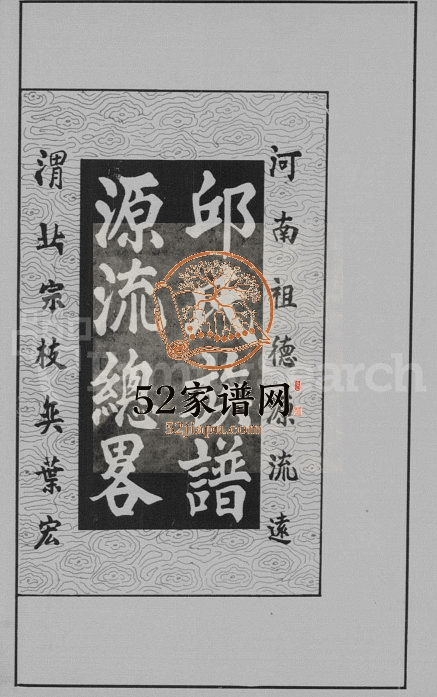 河南祖德源流遠
邱氏族譜
源流總畧
渭北宗枝奕葉宏
52家谱网